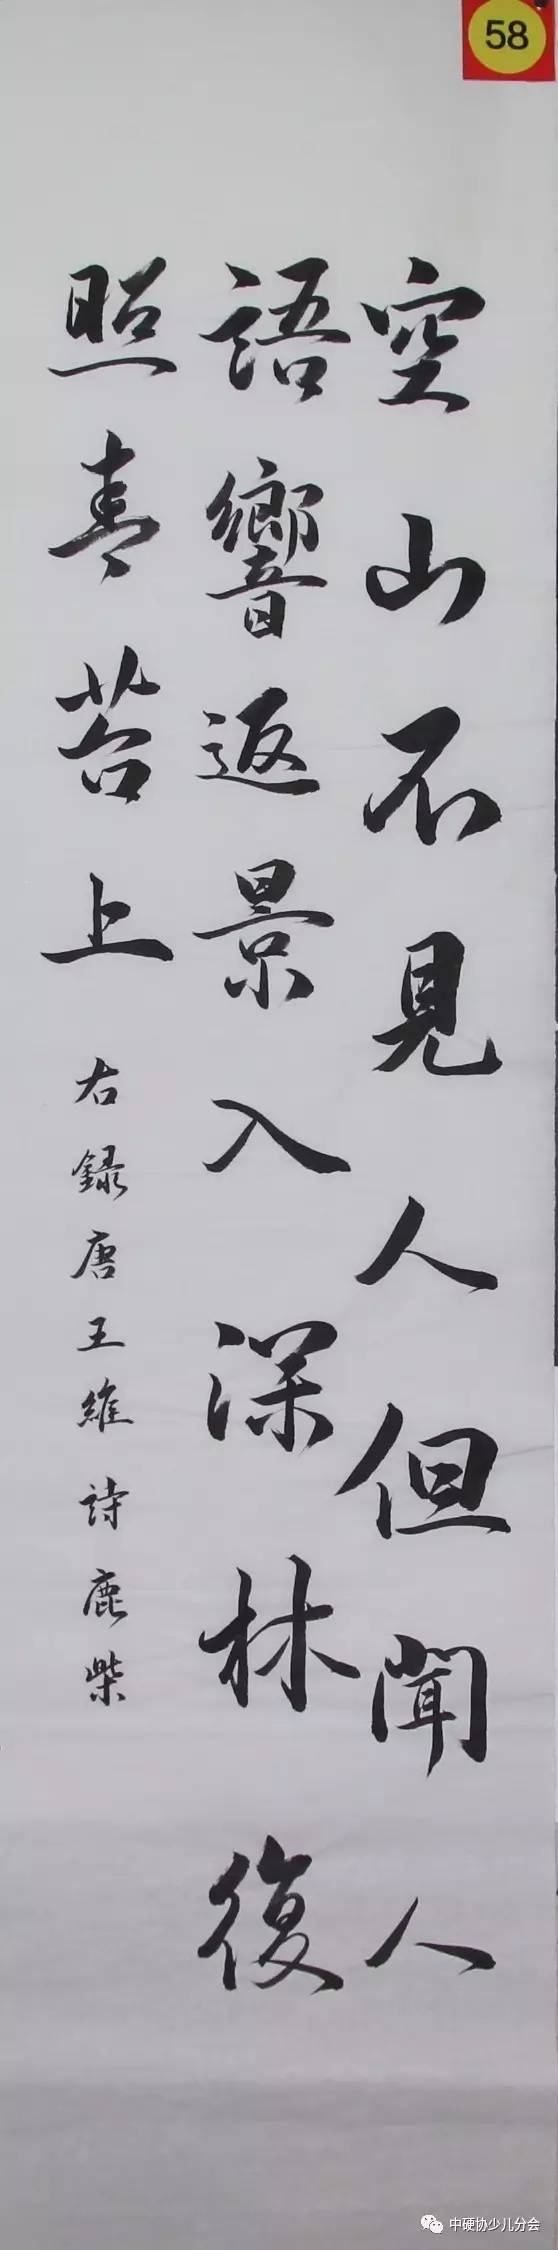 58
空山不見人但聞人
語響返景入深林復
照青苔上
右録唐王維詩鹿柴
中硬协少儿分会